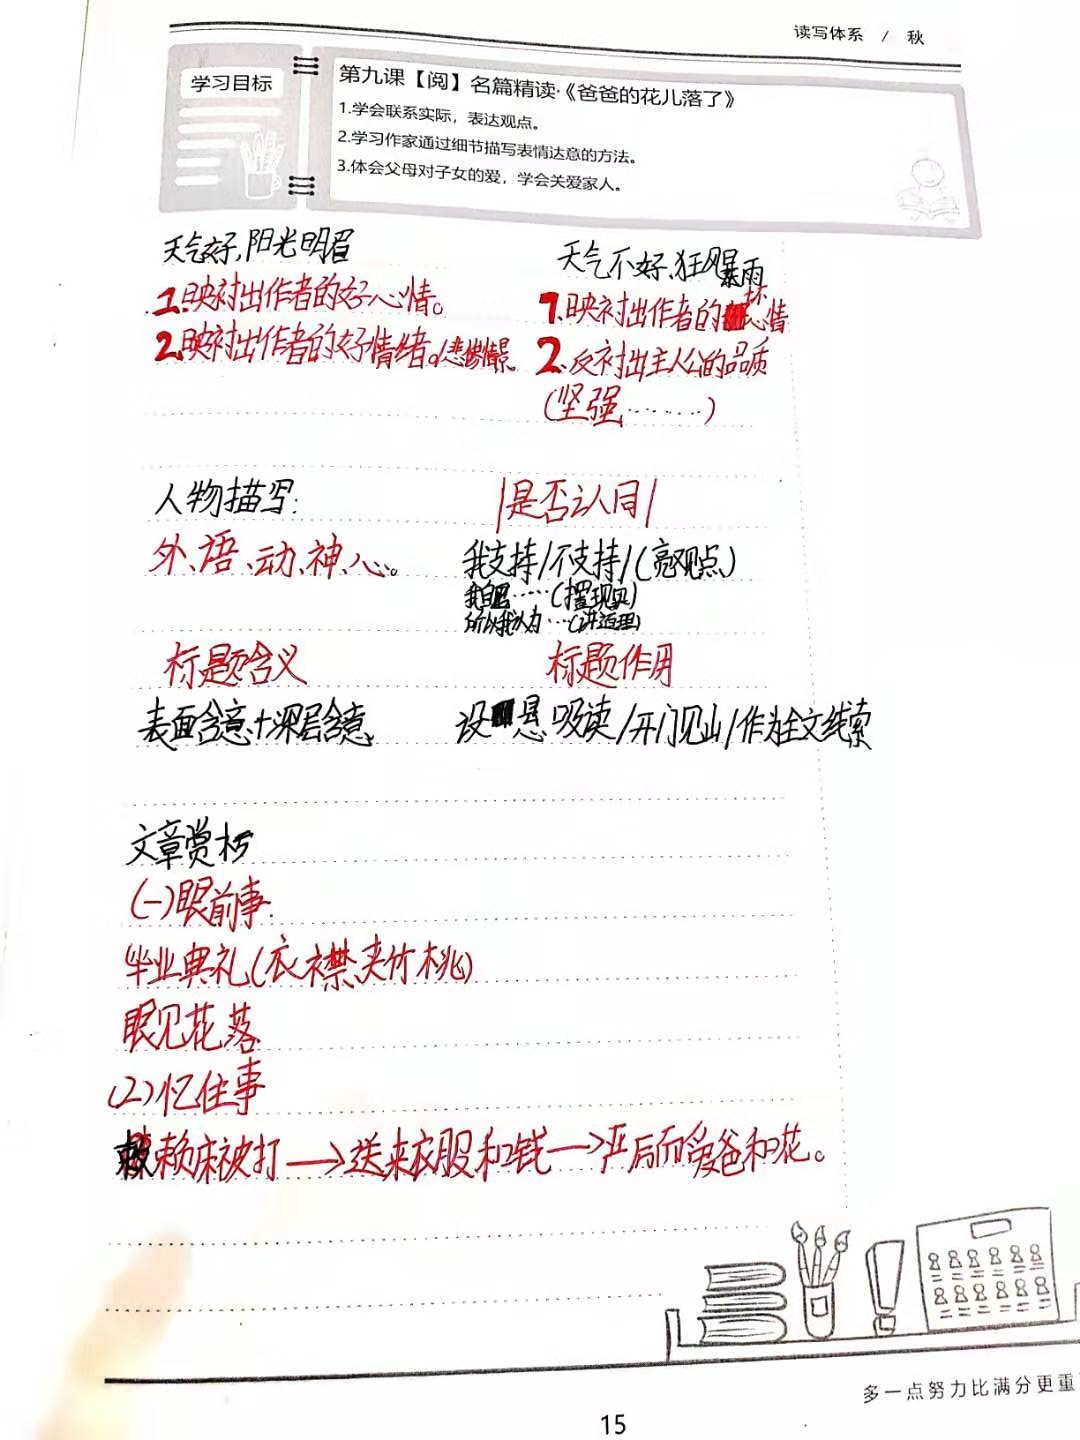 读写体系 / 秋
学习目标
第九课【阅】名篇精读·《爸爸的花儿落了》
1.学会联系实际，表达观点。
2.学习作家通过细节描写表情达意的方法。
3.体会父母对子女的爱，学会关爱家人。
天气好,阳光明眉
天气不好,狂风暴雨
1.映衬出作者的好心情。
1.映衬出作者的坏心情
2.映衬出作者的好情绪。/悲惨情景。
2.反衬出主人公的品质
(坚强……)
人物描写:
|是否认同|
外、语、动、神、心。
我支持/不支持/(亮观点)
……(摆现实)
所以我认为…(讲道理)
标题含义
标题作用
表面含意+深层含意
设悬吸读/开门见山/作为全文线索
文章赏析
(一)眼前事:
毕业典礼(衣襟,夹竹桃)
眼见花落
(2)忆往事
赖床被打→送来衣服和钱→严后而爱爸和花。
多一点努力比满分更重
15